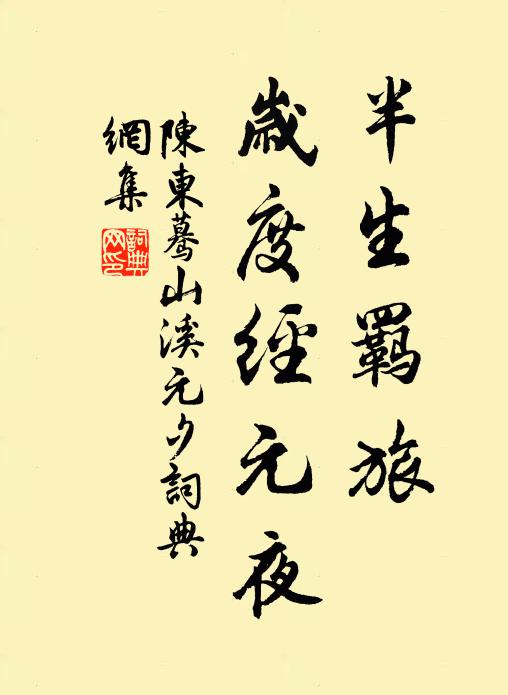 半生羈旅
歲度經元夜
陳東驀山溪元夕詞典
網集
詞典
网印